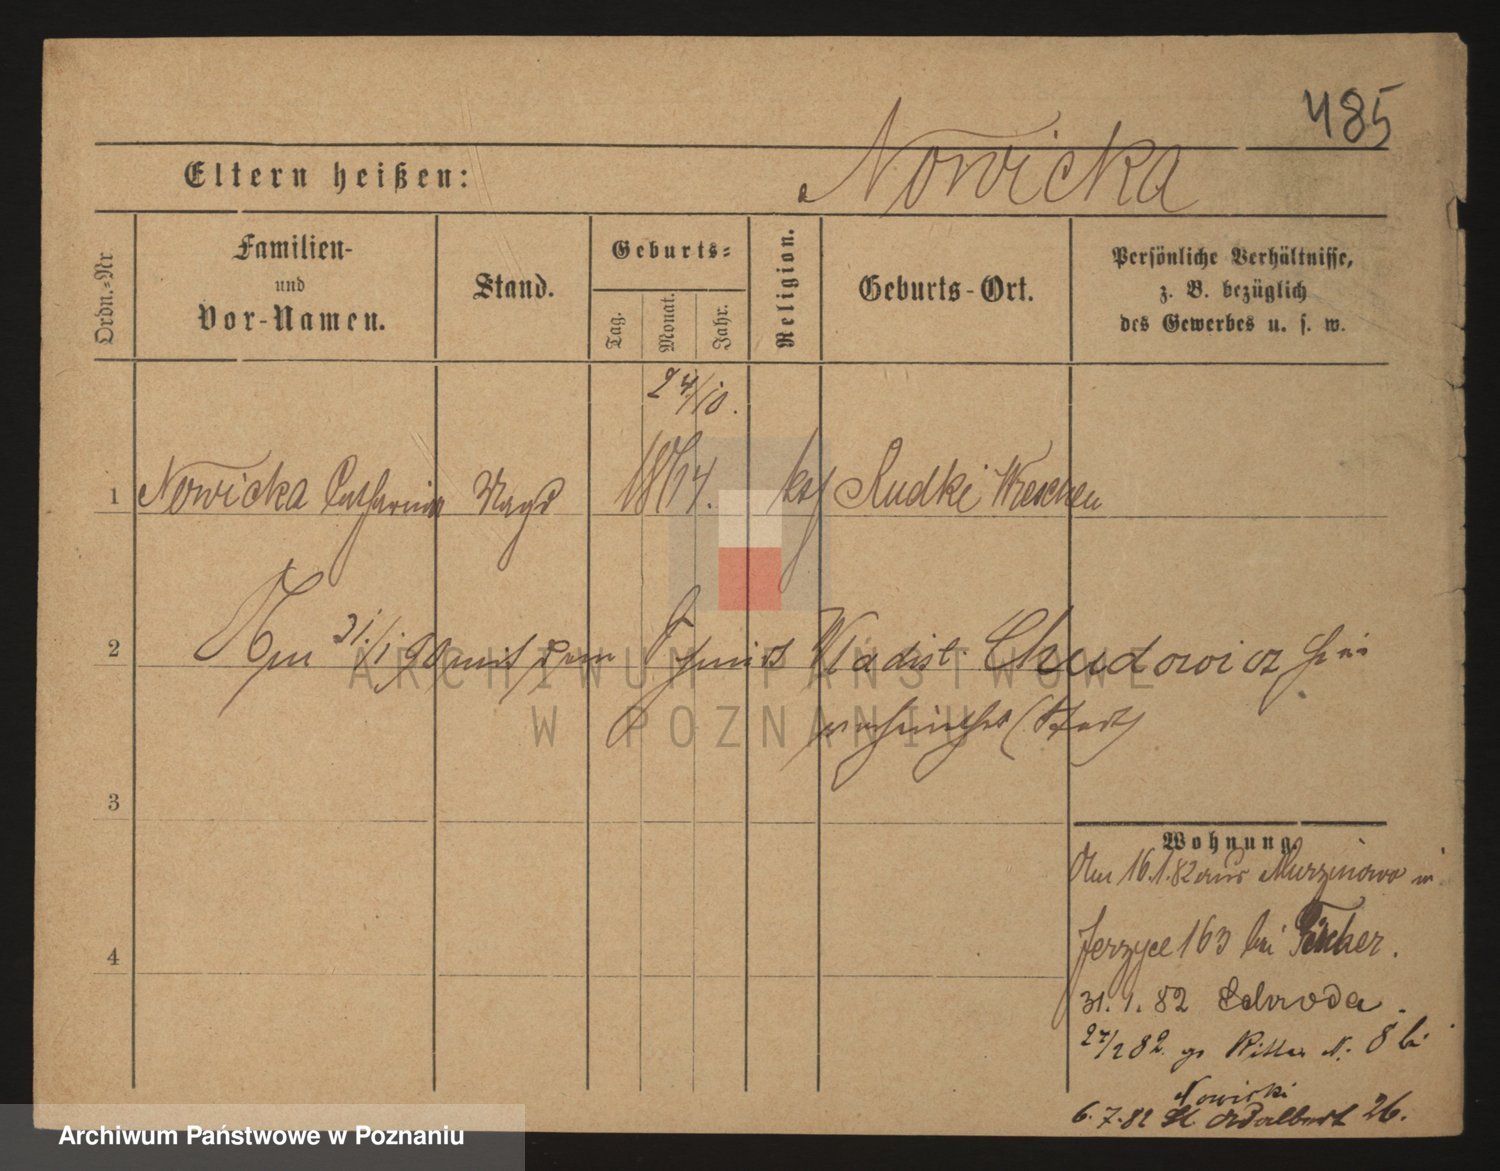 485
Eltern heißen: Nowicka
Ordn.=Nr
Familien-
und
Vor-Namen.
Stand.
Geburts=
Tag.
Monat.
Jahr.
Religion.
Geburts-Ort.
Persönliche Verhältnisse,
z. B. bezüglich
des Gewerbes u. s. w.
24/10.
1 Nowicka Catharina Magd 1864. kath Rudki Wreschen
2 Am 31./1 90 mit dem Schmidt Wladisl. Chudowicz hier
verheirathet (Stadt)
3
4
Wohnung.
Am 16.1.82 aus Murzinowo in
Jerzyce 163 bei Fischer.
31. 1. 82 Schroda.
27/2 82. gr Ritter N. 8 bei
Nowicki
6.7.82 St Adalbert 26.
ARCHIWUM PAŃSTWOWE
W POZNANIU
Archiwum Państwowe w Poznaniu